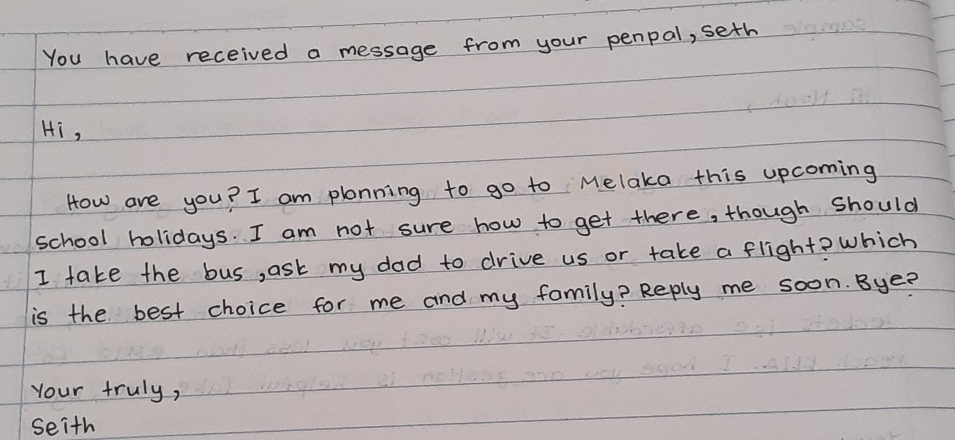 You have received a message from your penpal, seth
Hi,
How are you? I am planning to go to Melaka this upcoming
school holidays. I am not sure how to get there, though Should
I take the bus, ask my dad to drive us or take a flight? Which
is the best choice for me and my family? Reply me soon. Bye?
Your truly,
Seith